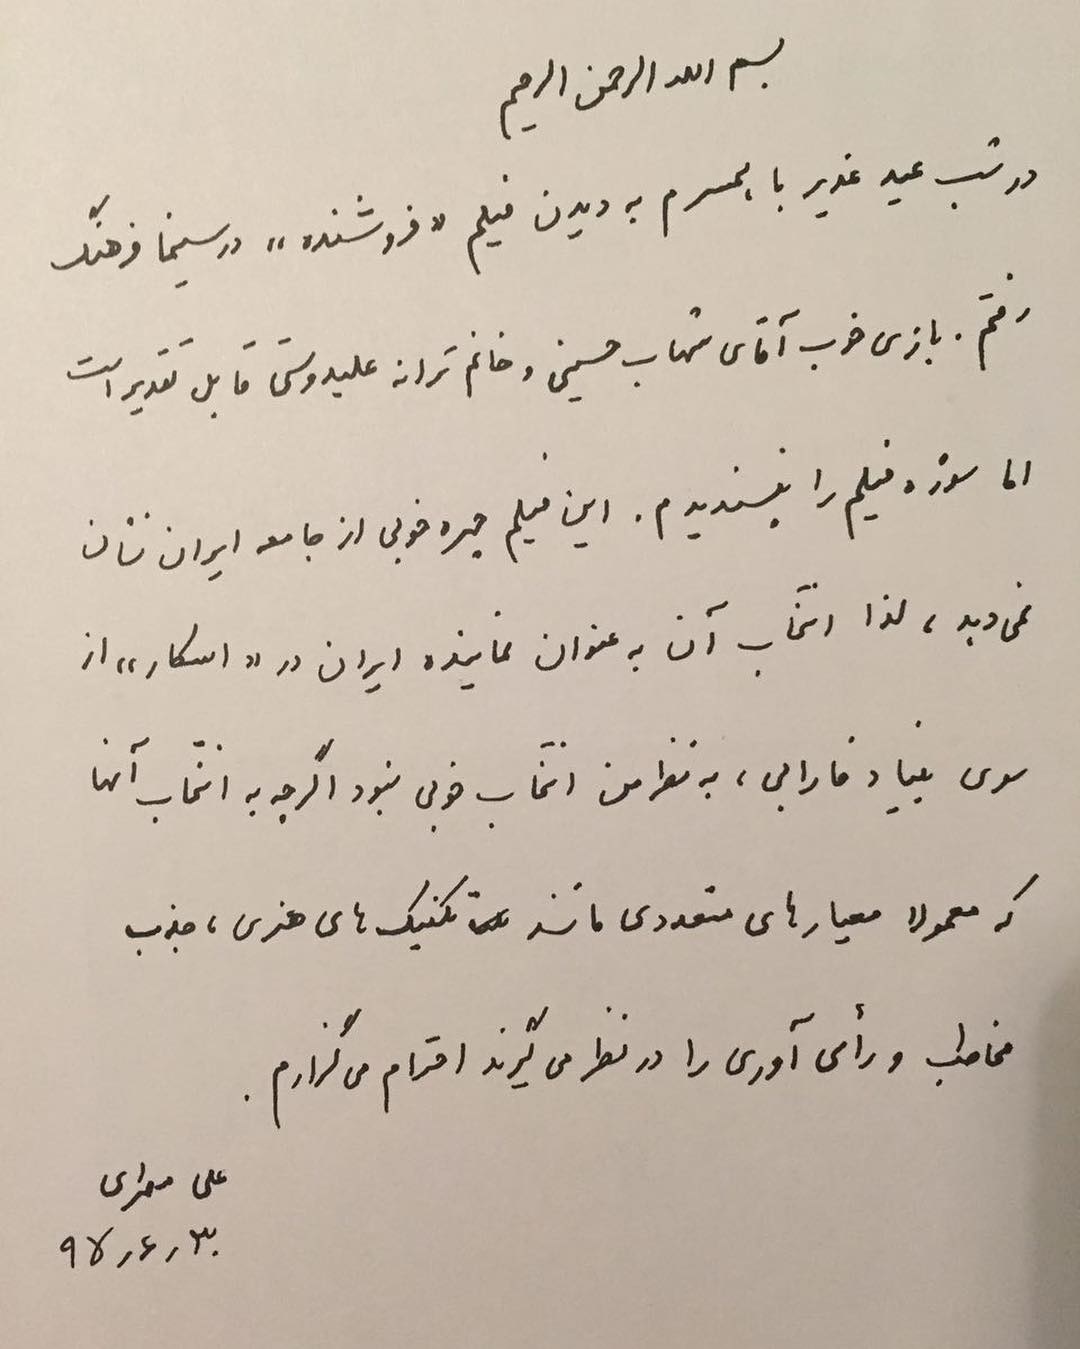 بسم الله الرحمن الرحیم
در شب عید غدیر با همسرم به دیدن فیلم «فروشنده» در سینما فرهنگ
رفتم. بازی خوب آقای شهاب حسینی و خانم ترانه علیدوستی قابل تقدیر است
اما سوژه فیلم را نپسندیدم. این فیلم چهره خوبی از جامعه ایران نشان
نمی‌دهد، لذا انتخاب آن به عنوان نماینده ایران در «اسکار» از
سوی بنیاد فارابی، به نظر من انتخاب خوبی نبود اگرچه به انتخاب آنها
که معمولا معیارهای متعددی مانند تکنیک های هنری، جذب
مخاطب و رأی آوری را در نظر می گیرند احترام می گزارم.
علی مطهری
۳۰ر۶ر۹۵